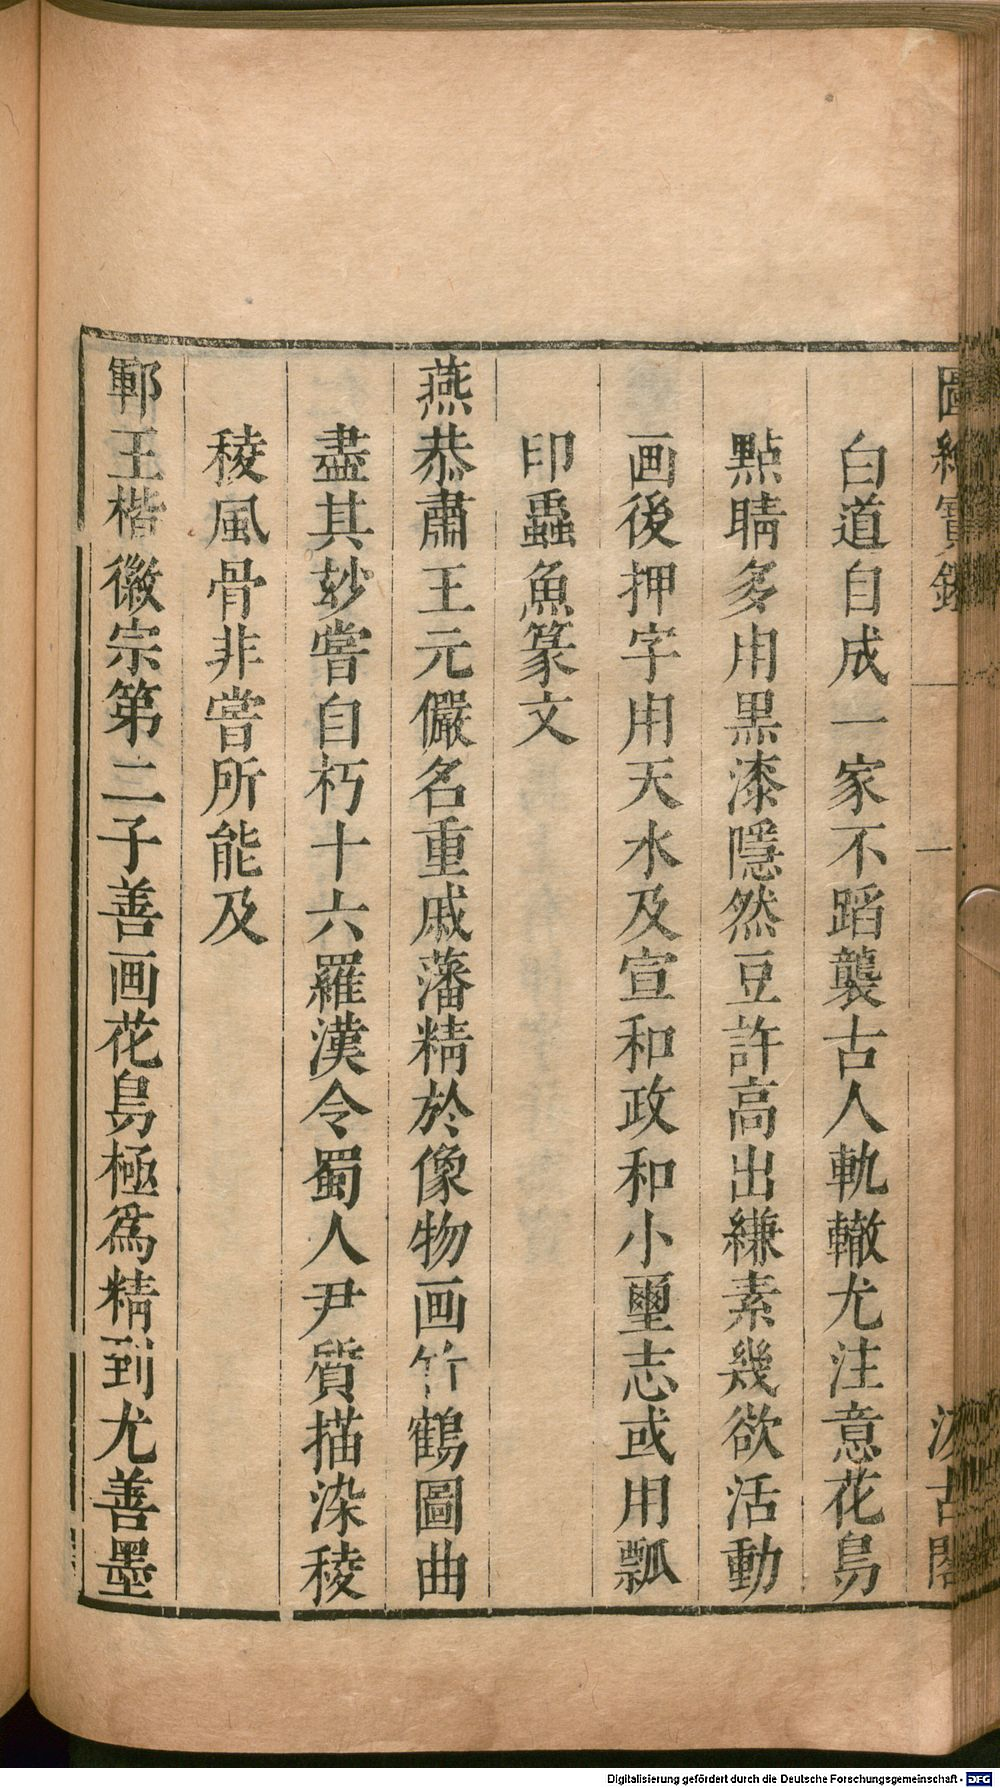 圖繪寶鑑 一 汲古閣
白道自成一家不蹈襲古人軌轍尤注意花鳥
點睛多用黑漆隱然豆許高出縑素幾欲活動
画後押字用天水及宣和政和小璽志或用瓢
印蟲魚篆文
燕恭肅王元儼名重戚藩精於像物画竹鶴圖曲
盡其玅嘗自朽十六羅漢令蜀人尹質描染稜
稜風骨非嘗所能及
鄆王楷徽宗第二子善画花鳥極爲精到尤善墨
Digitalisierung gefördert durch die Deutsche Forschungsgemeinschaft - DFG